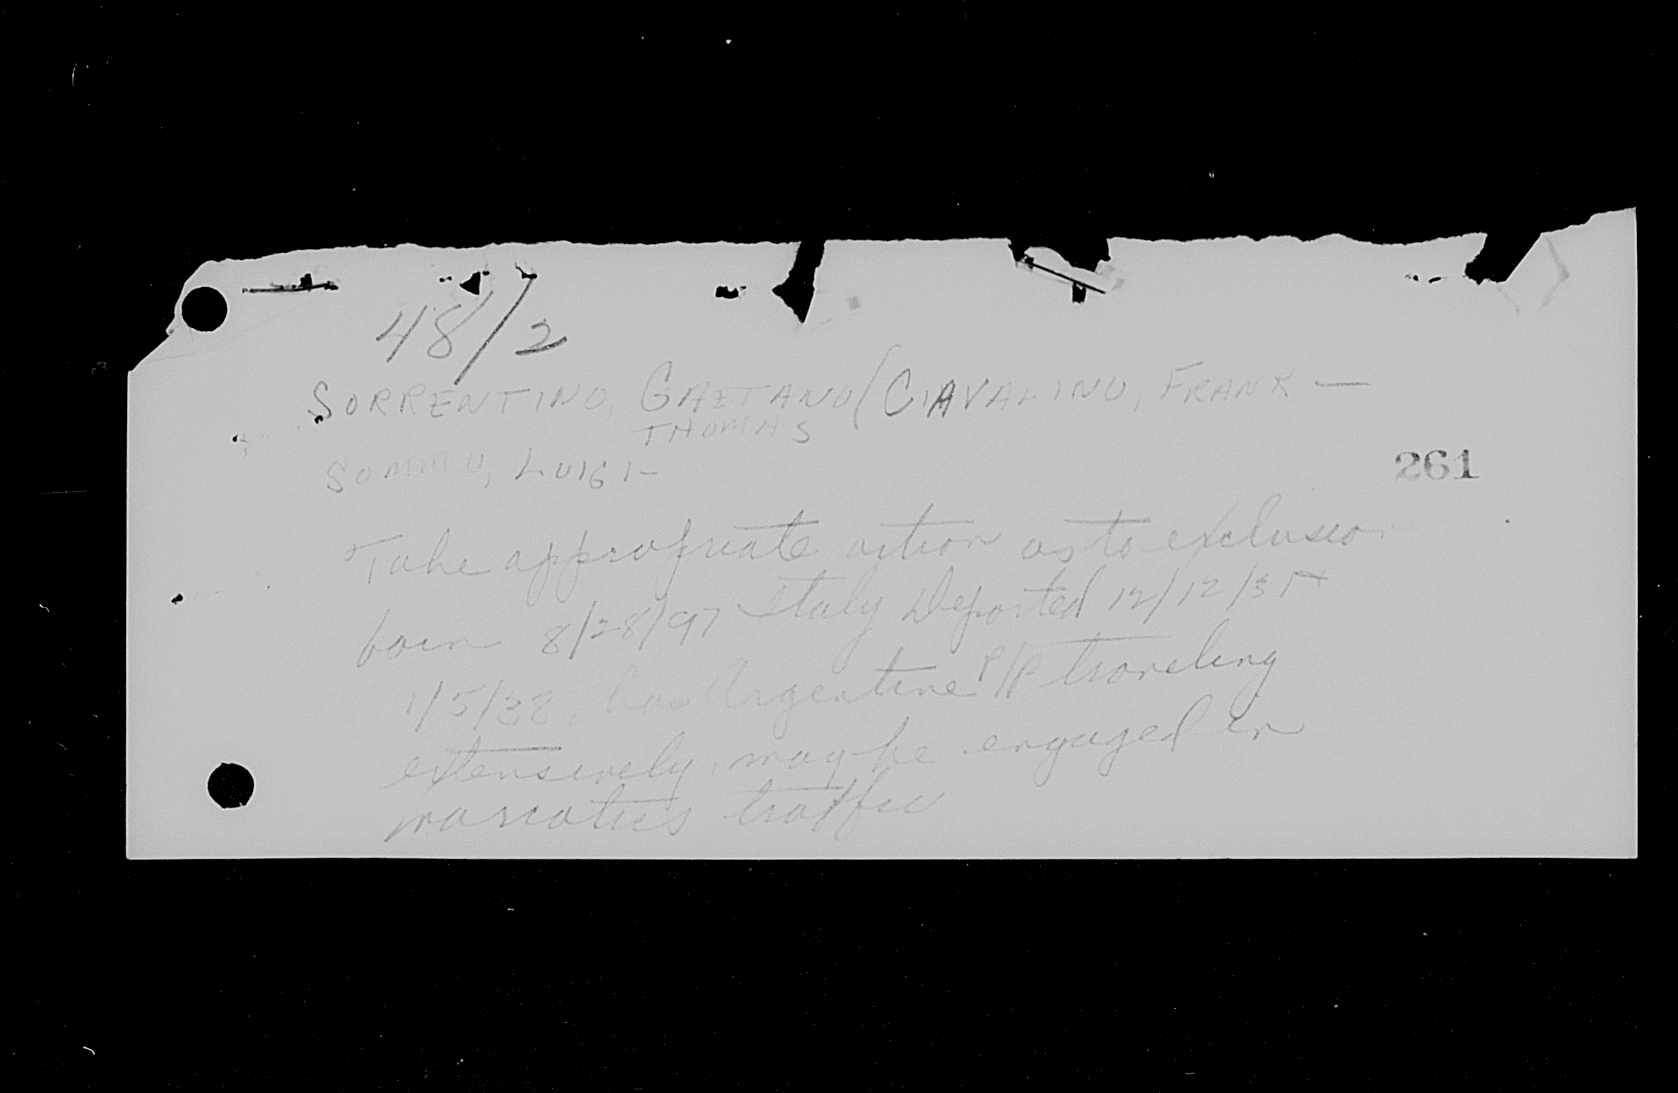 48/2
SORRENTINO, GAETANO (CIAVALINO, FRANK —
THOMAS
LUIGI —
261
Take appropriate action as to exclusion
born 8/28/97 Italy Deported 12/12/35
1/5/38, has Argentine P/P traveling
extensively, may be engaged in
narcotics traffic